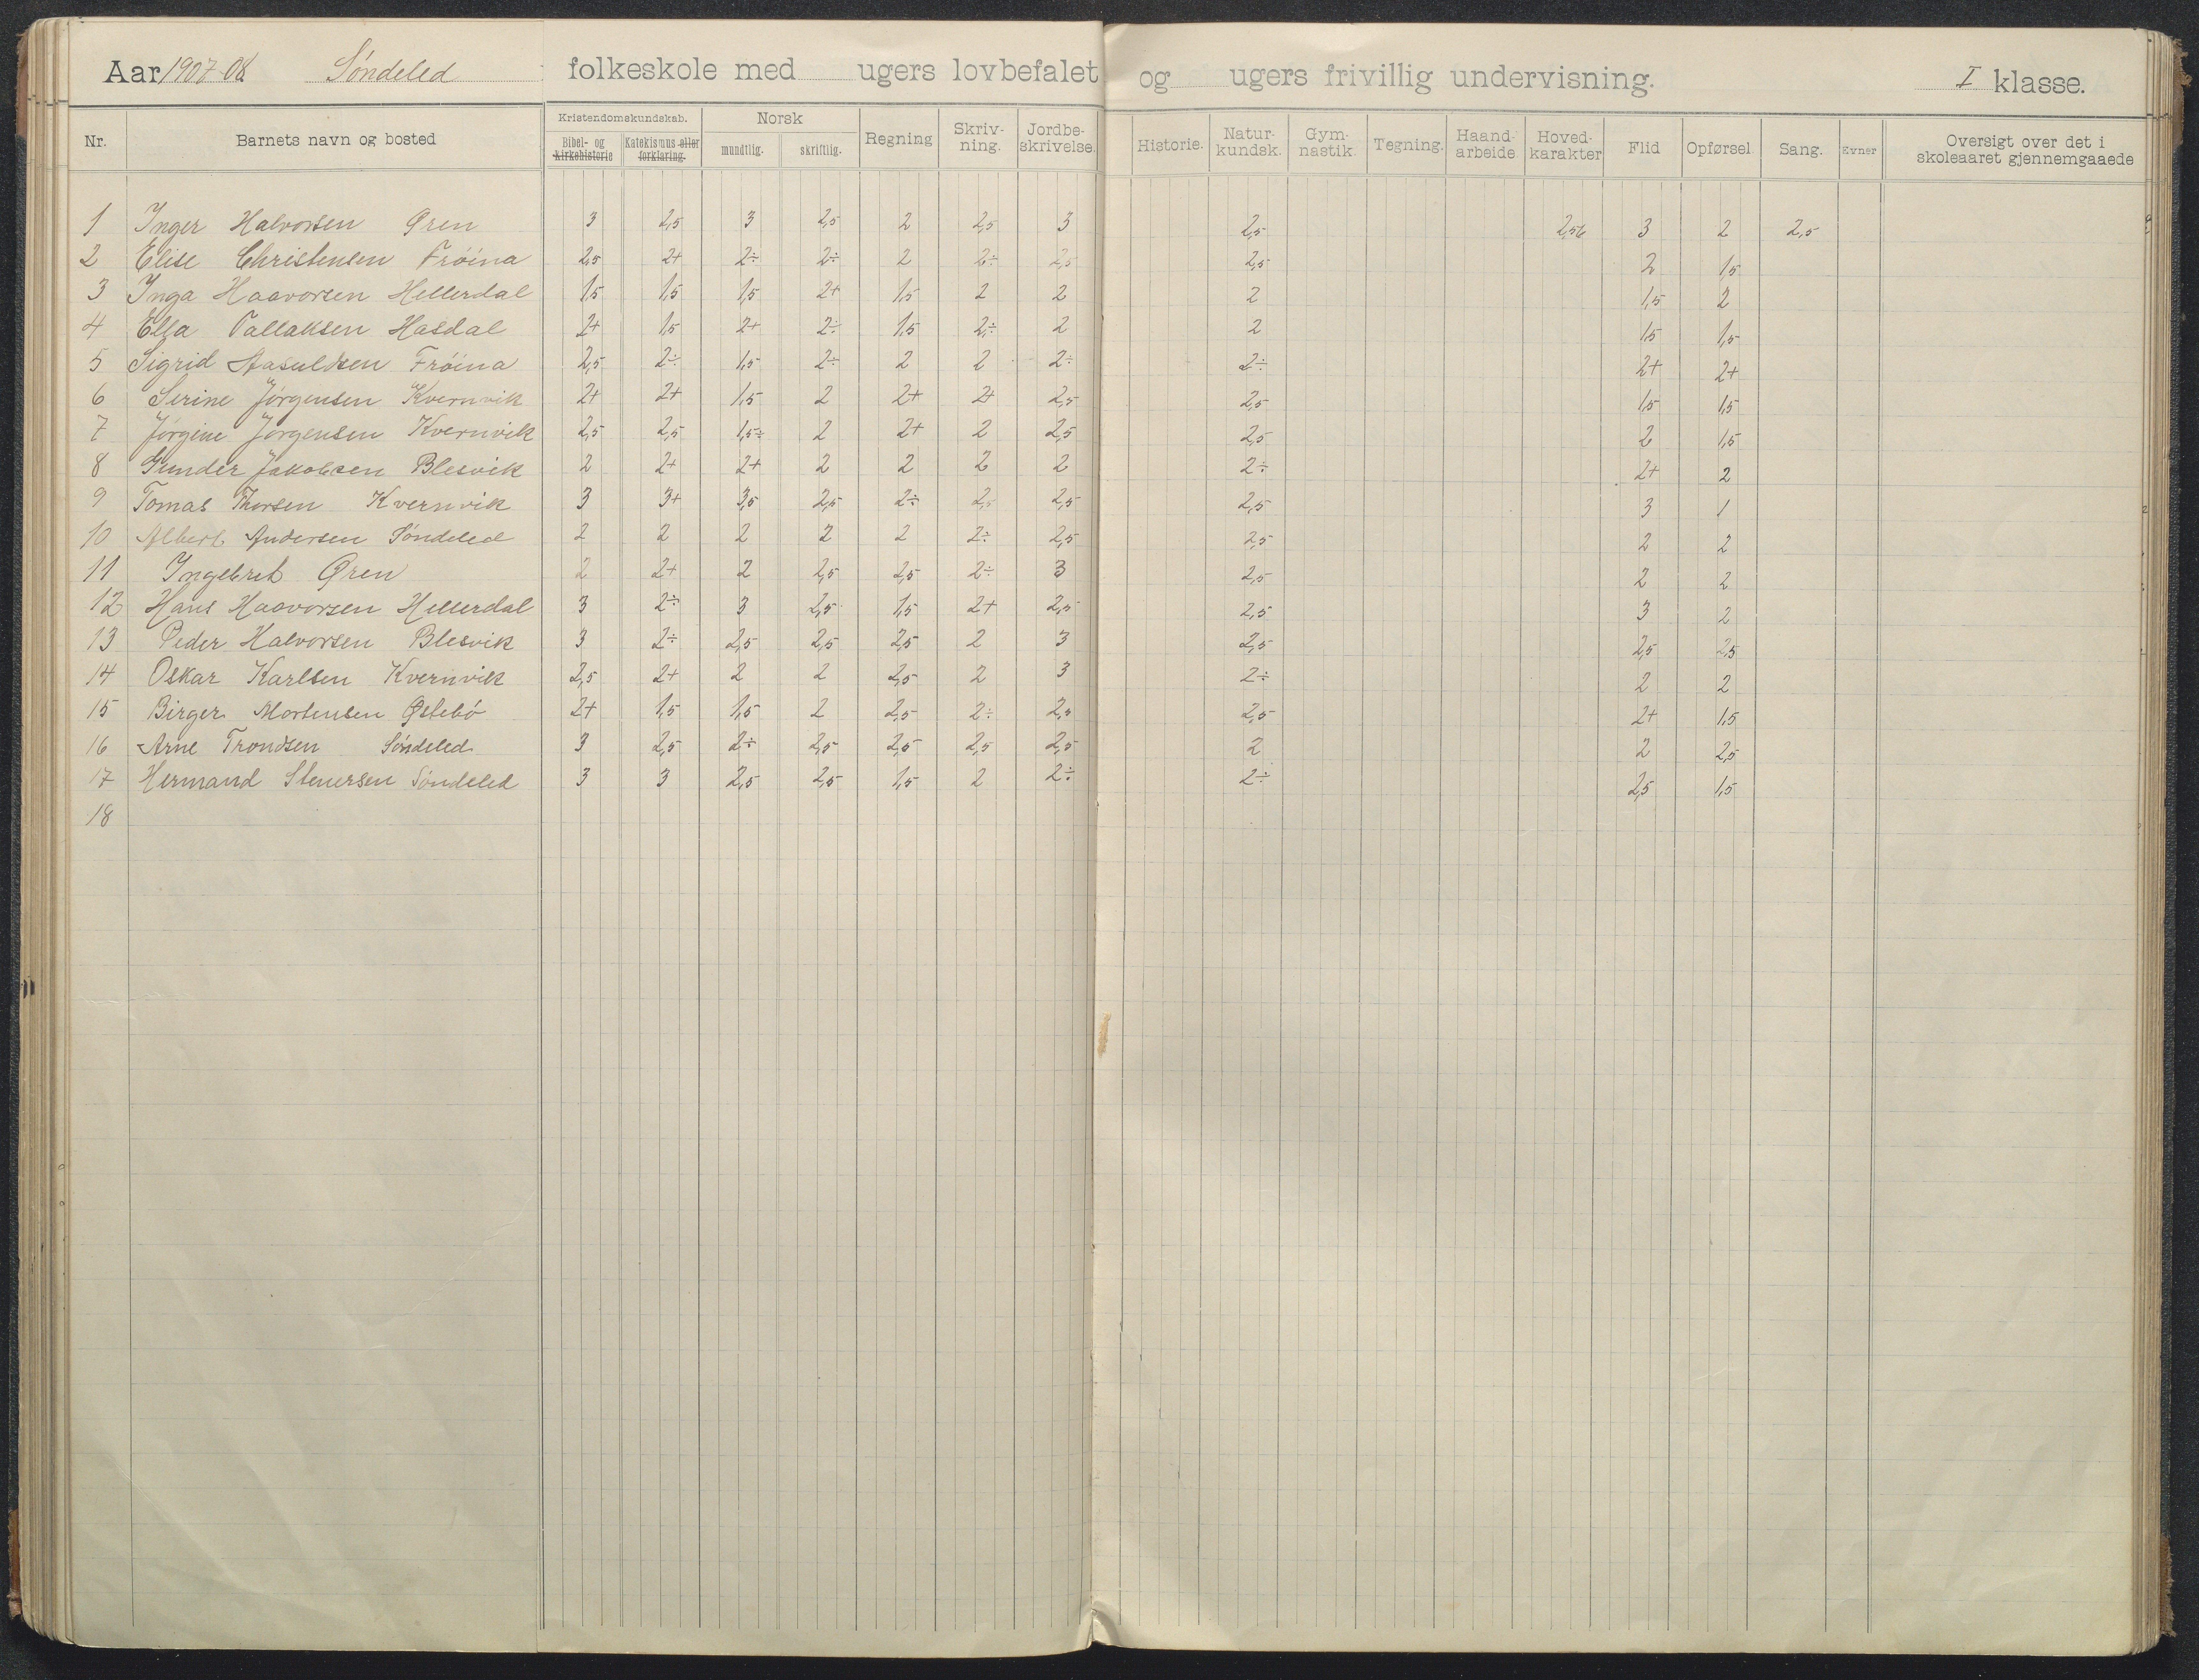 Aar 1907-08 Söndeled folkeskole med ugers lovbefalet og ugers frivillig undervisning. I klasse.
Nr. Barnets navn og bosted Kristendomskundskab. Bibel- og kirkehistorie Katekismus eller forklaring. Norsk mundtlig. skriftlig. Regning Skriv-ning. Jordbe-skrivelse. Historie. Natur-kundsk. Gym-nastik. Tegning. Haand-arbeide Hoved-karakter Flid Opførsel Sang. Evner Oversigt over det i skoleaaret gjennemgaaede
1 Inger Halvorsen Øren 3 2,5 3 2,5 2 2,5 3 2,5 2,56 3 2 2,5
2 Elise Christensen Fröina 2,5 2+ 2÷ 2÷ 2 2÷ 2,5 2,5 2 1,5
3 Inga Haavorsen Hellerdal 1,5 1,5 1,5 2+ 1,5 2 2 2 1,5 2
4 Ella Tallaksen Hasdal 2+ 1,5 2+ 2÷ 1,5 2÷ 2 2 1,5 1,5
5 Sigrid Aasuldsen Fröina 2,5 2÷ 1,5 2÷ 2 2 2÷ 2÷ 2+ 2+
6 Serine Jörgensen Kvernvik 2+ 2+ 1,5 2 2+ 2+ 2,5 2,5 1,5 1,5
7 Jörgine Jörgensen Kvernvik 2,5 2,5 1,5÷ 2 2+ 2 2,5 2,5 2 1,5
8 Gunder Jakobsen Blesvik 2 2+ 2+ 2 2 2 2 2÷ 2+ 2
9 Tomas Thorsen Kvernvik 3 3+ 3,5 2,5 2÷ 2,5 2,5 2,5 3 1
10 Albert Andersen Söndeled 2 2 2 2 2 2÷ 2,5 2,5 2 2
11 Ingebret Øren 2 2+ 2 2,5 2,5 2÷ 3 2,5 2 2
12 Hans Haavorsen Hellerdal 3 2÷ 3 2,5 1,5 2+ 2,5 2,5 3 2
13 Peder Halvorsen Blesvik 3 2÷ 2,5 2,5 2,5 2 3 2,5 2,5 2,5
14 Oskar Karlsen Kvernvik 2,5 2+ 2 2 2,5 2 3 2÷ 2 2
15 Birger Mortensen Østebö 2+ 1,5 1,5 2 2,5 2÷ 2,5 2,5 2+ 1,5
16 Arne Trondsen Söndeled 3 2,5 2÷ 2,5 2,5 2,5 2,5 2 2 2,5
17 Hermand Stenersen Söndeled 3 3 2,5 2,5 1,5 2 2÷ 2÷ 2,5 1,5
18